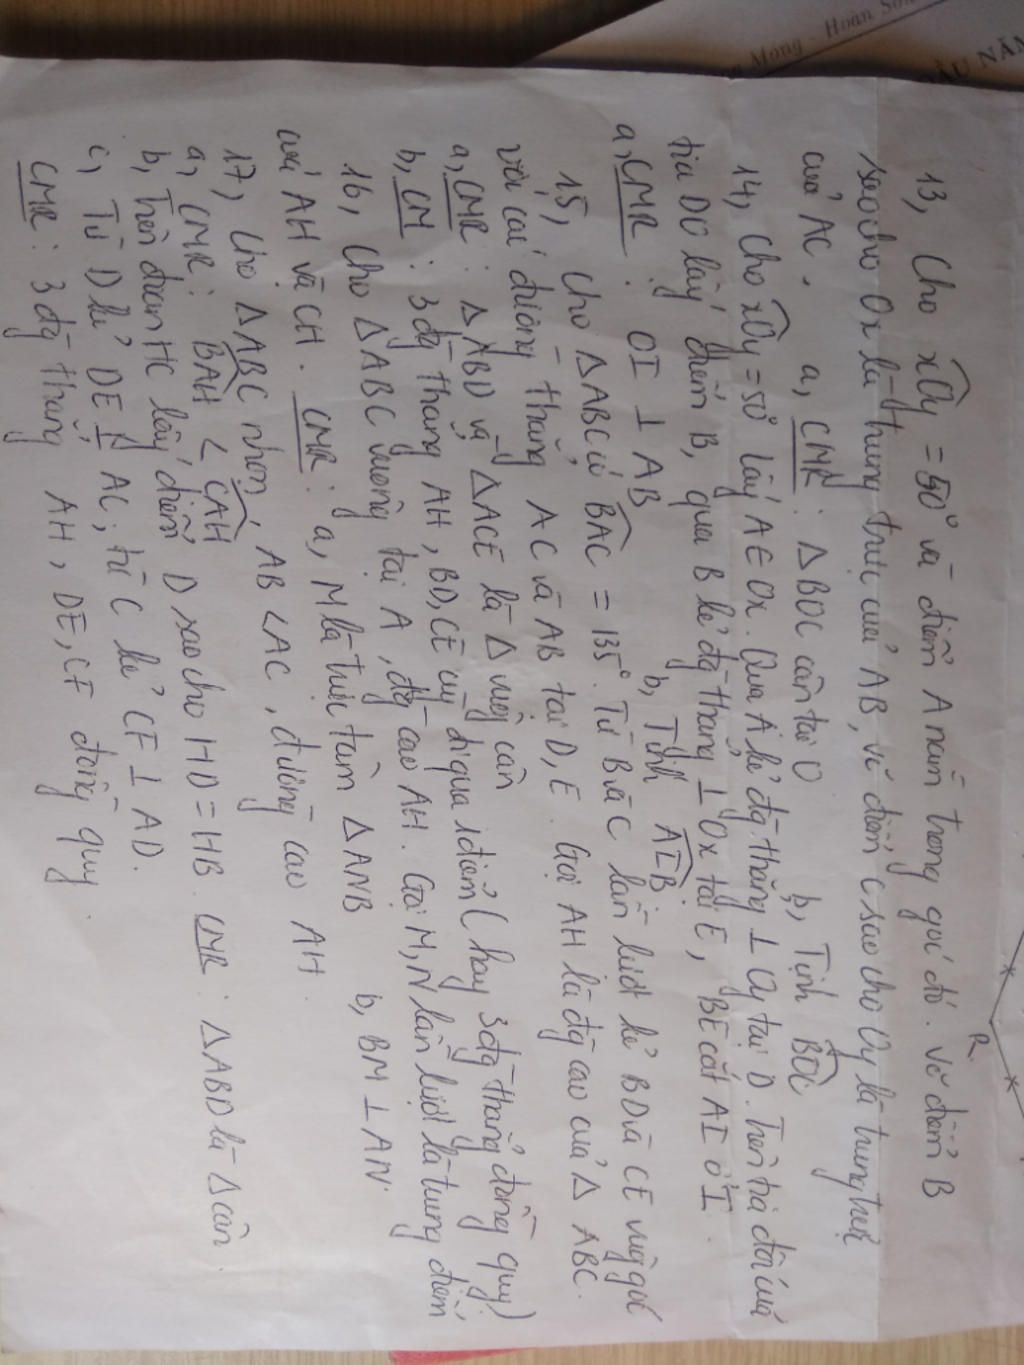 Mòng - Hoàn Sơn
ĐẦU NĂM
R
13, Cho xOy = 50° và điểm A nằm trong góc đó. Vẽ điểm B
sao cho Ox là trung trực của AB, vẽ điểm C sao cho Oy là trung trực
của AC. a, CMR: Δ BOC cân tại O b, Tính BOC
14, Cho xOy = 50° lấy A ∈ Ox. Qua A kẻ đg thẳng ⊥ Oy tại D. Trên tia đối của
tia DO lấy điểm B, qua B kẻ đg thẳng ⊥ Ox tại E, BE cắt AI ở I.
a, CMR: OI ⊥ AB b, Tính AIB.
15, Cho Δ ABC có BAC = 135°. Từ B và C lần lượt kẻ BD và CE vuông góc
với các đường thẳng AC và AB tại D, E. Gọi AH là đg cao của Δ ABC.
a, CMR: Δ ABD và Δ ACE là Δ vuông cân
b, CM: 3 đg thẳng AH, BD, CE cùg đi qua 1 điểm (hay 3 đg thẳng đồng quy)
16, Cho Δ ABC vuông tại A, đg cao AH. Gọi M, N lần lượt là trung điểm
của AH và CH. CMR: a, M là trực tâm Δ ANB b, BM ⊥ AN.
17, Cho Δ ABC nhọn, AB < AC, đường cao AH.
a, CMR: BAH < CAH
b, Trên đoạn HC lấy điểm D sao cho HD = HB. CMR: Δ ABD là Δ cân.
c, Từ D kẻ DE ⊥ AC; từ C kẻ CF ⊥ AD.
CMR: 3 đg thẳng AH, DE, CF đồng quy.